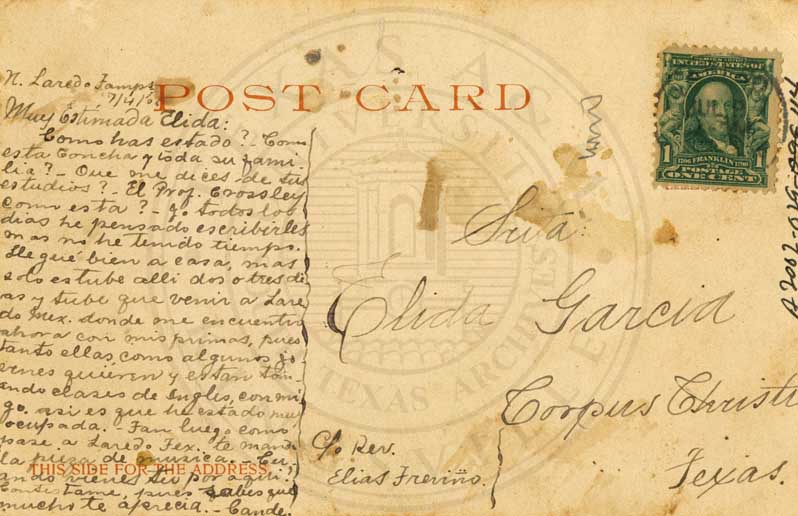 N. Laredo Tamps
7/4/0
POST CARD
Muy Estimada Elida:
Como has estado? - Como
esta Concha y toda su fami-
lia? - Que me dices de tus
estudios? - El Prof. Crossley
como esta? - Yo todos los
dias he pensado escribirles
mas no he tenido tiempo.
Llegué bien a casa, mas
solo estube alli dos o tres di
as y tube que venir a Lare
do Mex. donde me encuentro
ahora con mis primas, pues
tanto ellas como algunos jo
venes quieren y estan tom-
ando clases de Ingles, con mi
go. asi es que he estado muy
ocupada. - Tan luego como
pase a Laredo Tex. te mando
la pieza de musica. - Cu-
THIS SIDE FOR THE ADDRESS.
ando vienes tu por aqui?
Contestame, pues sabes que
mucho te aprecia. - Cande.
SERIES 1902
UNITED STATES OF
AMERICA
1706 FRANKLIN 1790
1 POSTAGE 1
ONE CENT
Srita:
Elida Garcia
Corpus Christi
Texas.
c/o Rev.
Elias Treviño.
A 2002-029.0096 114
TEXAS ARCHIVES